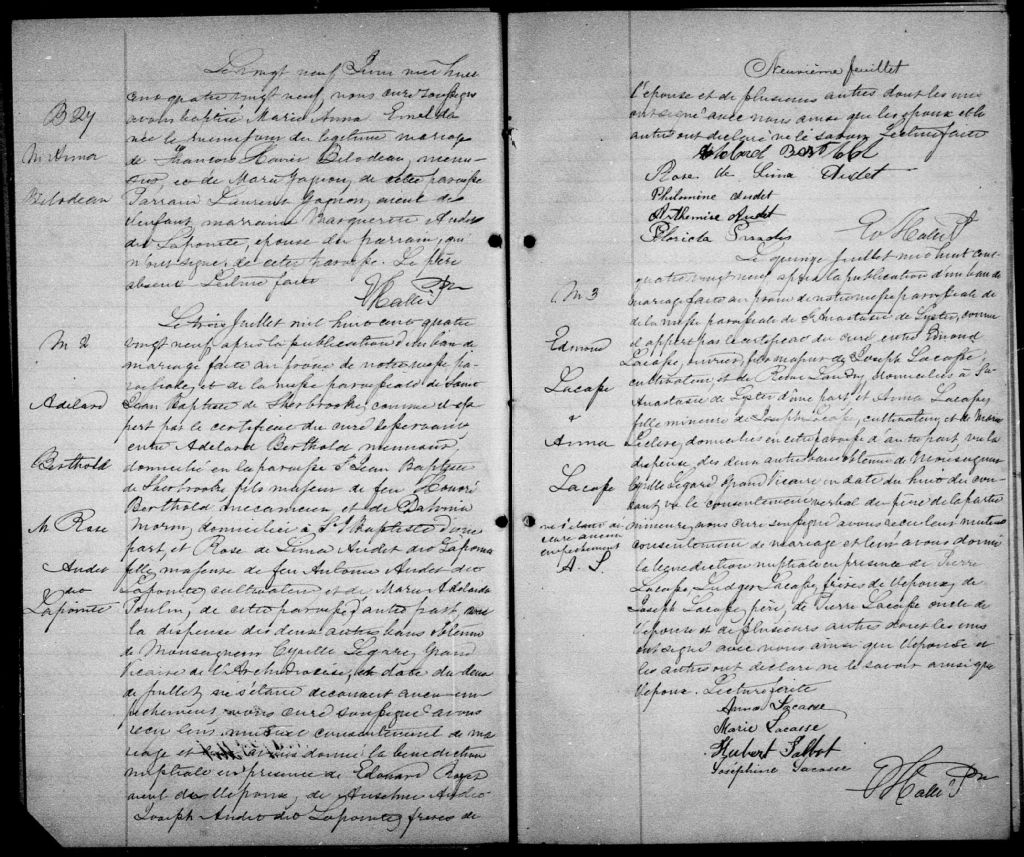 B 27
M. Anna
Bilodeau
Le vingt neuf Juin mil huit
cent quatre vingt neuf, nous curé soussigné
avons baptisé Marie Anna
née le du légitime mariage
de François Xavier Bilodeau,
et de Marie Gagnon, de cette paroisse
Parrain Laurent Gagnon, aieul de
l'enfant, marraine Marguerite Audet
dit Lapointe, épouse du parrain, qui
n'ont signé de cette paroisse. Le père
absent Lecture faite
M 2
Adélard
Berthold
M Rose
Audet
dit
Lapointe
Le trois Juillet mil huit cent quatre
vingt neuf après la publication d'un ban de
mariage faite au prône de notre messe pa-
roissiale, et de la messe paroissiale de Saint
Jean Baptiste de Sherbrooke, comme il ap-
pert par le certificat du curé
entre Adelard Berthold
domicilié en la paroisse St Jean Baptiste
de Sherbrooke fils majeur de feu Honoré
Berthold mecanicien, et de
Morin, domicilié à St J Baptiste d'une
part, et Rose de Lima Audet dit Lapointe
fille majeure de feu Antoine Audet dit
Lapointe cultivateur et de Marie Adelaide
Poulin, de cette paroisse d'autre part, vu
la dispense des deux autres bans obtenue
de Monseigneur Cyrille Legaré, Grand
Vicaire de l'Archidiocèse, en date du deux
de juillet, ne s'étant découvert aucun em-
pêchement, nous curé soussigné avons
reçu leur mutuel consentement de ma-
riage et avons donné la bénédiction
nuptiale en présence de Edouard Roger
de l'épouse, de Anselme Audet
Joseph Audet dit Lapointe, frères de
Neuvième feuillet
l'épouse et de plusieurs autres dont les uns
ont signé avec nous ainsi que les époux et les
autres ont déclaré ne le savoir Lecture faite
Rose de Lima Audet
Philomine Audet
Arthemise Audet
M 3
Edmond
Lacasse
&
Anna
Lacasse
Le quinze Juillet mil huit cent
quatre vingt neuf après la publication d'un ban de
mariage faite au prône de notre messe paroissiale et
de la messe paroissiale de St Anastasie de Lyster, comme
il appert par le certificat du curé entre Edmond
Lacasse, ouvrier, fils majeur de Joseph Lacasse,
cultivateur, et de Landry domiciliés à St
Anastasie de Lyster d'une part et Anna Lacasse,
fille mineure de Joseph Lacasse, cultivateur, et de Marie
Leclerc, domiciliés en cette paroisse d'autre part, vu la
dispense des deux autres bans obtenue de Monseigneur
Cyrille Légaré Grand Vicaire en date du huit du cou-
rant, vu le consentement verbal du père de la partie
mineure, nous curé soussigné avons reçu leur mutuel
consentement de mariage et leur avons donné
la bénédiction nuptiale en présence de Pierre
Lacasse Ludger Lacasse, frères de l'époux, de
Joseph Lacasse, père, de Pierre Lacasse oncle de
l'épouse et de plusieurs autres dont les uns
ont signé avec nous ainsi que l'épouse et
les autres ont déclaré ne le savoir ainsi que
l'époux. Lecture faite
Anna Lacasse
Marie Lacasse
Hubert Talbot
Joséphine Lacasse